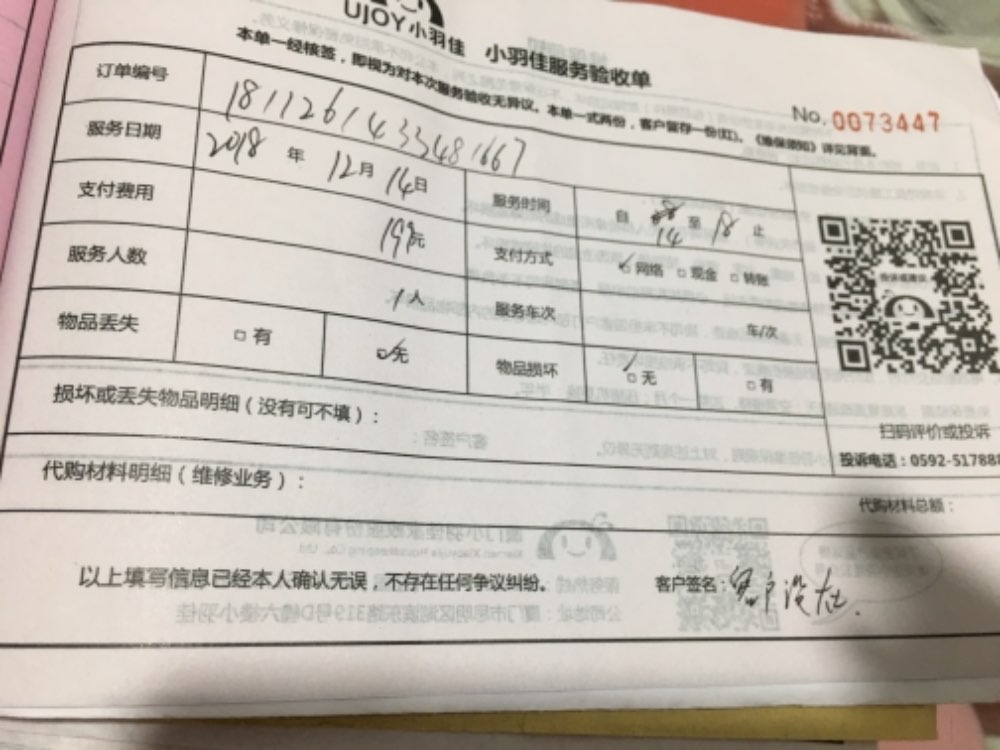 UJOY小羽佳 小羽佳服务验收单
本单一经核签，即视为对本次服务验收无异议。本单一式两份，客户留存一份(红)。《维保须知》详见背面。
No. 0073447
订单编号 1811261433481667
服务日期 2018 年 12月 14日 服务时间 自 14 至 18 止
支付费用 199元 支付方式 ☑网络 □现金 □转账
服务人数 1人 服务车次 车/次
物品丢失 □有 ☑无 物品损坏 ☑无 □有
损坏或丢失物品明细（没有可不填）：
扫码评价或投诉
投诉电话：0592-517888
代购材料明细（维修业务）：
代购材料总额：
以上填写信息已经本人确认无误，不存在任何争议纠纷。 客户签名：客户没在.